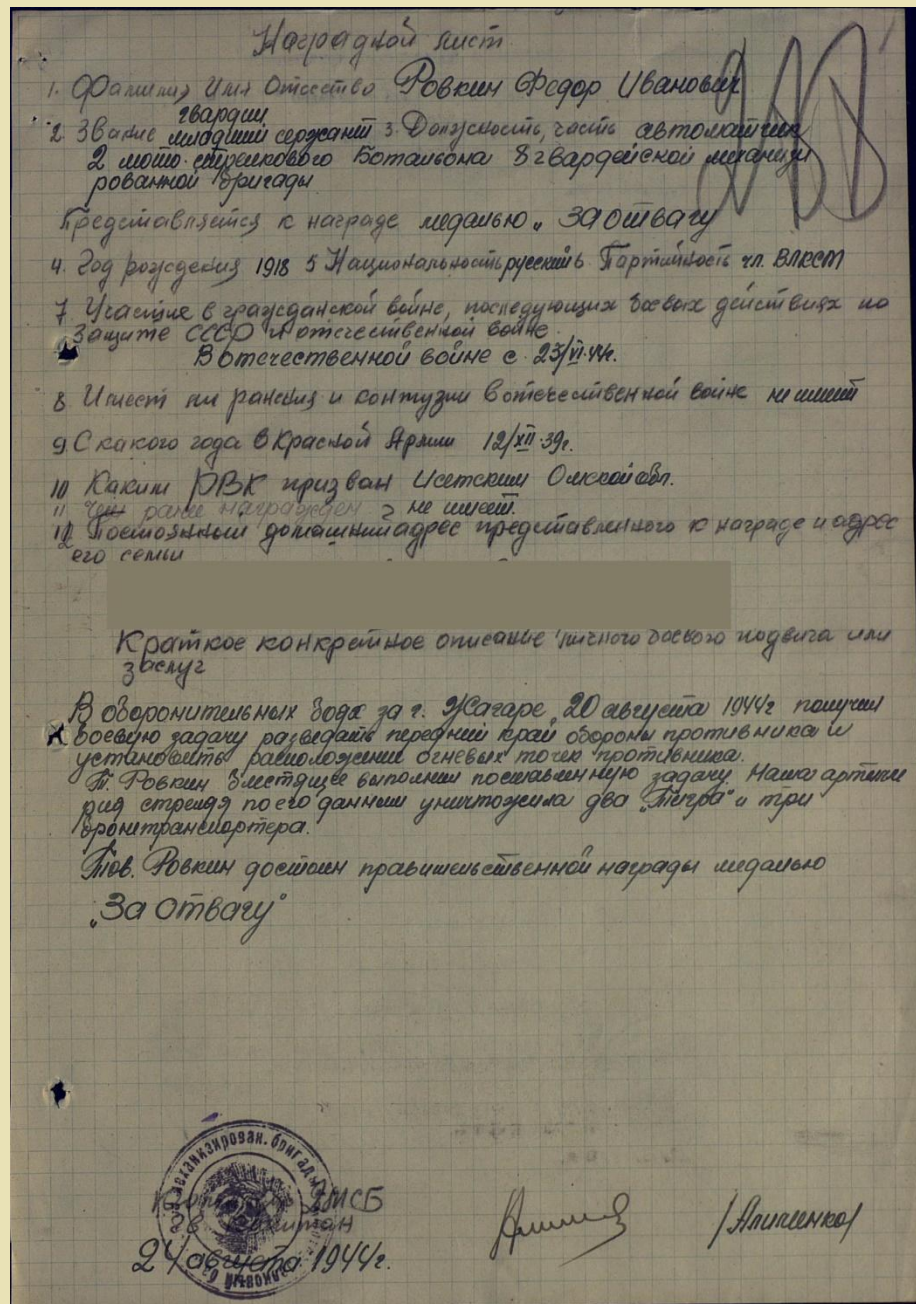 Наградной лист
1. Фамилия Имя Отчество Ровкин Федор Иванович
гвардии
2. Звание младший сержант 3. Должность, часть автоматчик
2 мото-стрелкового Ботальона 8 гвардейской механизи
рованной бригады
Представляется к награде медалью „За отвагу
4. Год рождения 1918 5 Национальность русский 6 Партийность чл. ВЛКСМ
7. Участие в гражданской войне, последующих боевых действиях по
Защите СССР и отечественной войне.
В отечественной войне с 23/VI
8 Имеет ли ранения и контузии в отечественной войне не имеет
9. С какого года в Красной Армии 12/XII-39г.
10 Каким РВК призван Исетским Омской обл.
11 Чем ране награжден не имеет.
12 Постоянный домашний адрес представленного к награде и адрес
его семьи
Краткое конкретное описание личного боевого подвига или
заслуг
В оборонительных боях за г. Жагаре, 20 августа 1944г получил
боевую задачу разведать передний край обороны противника и
установить расположение огневых точек противника.
Т. Ровкин блестящее выполнил поставленную задачу. Наша артилле
рия стреляя по его данным уничтожила два „Тигра" и три
бронетранспортера.
Тов. Ровкин достоин правительственной награды медалью
„За Отвагу"
механизирован. бригады
2МСБ
капитан
24 августа 1944г.
/Аличенко/